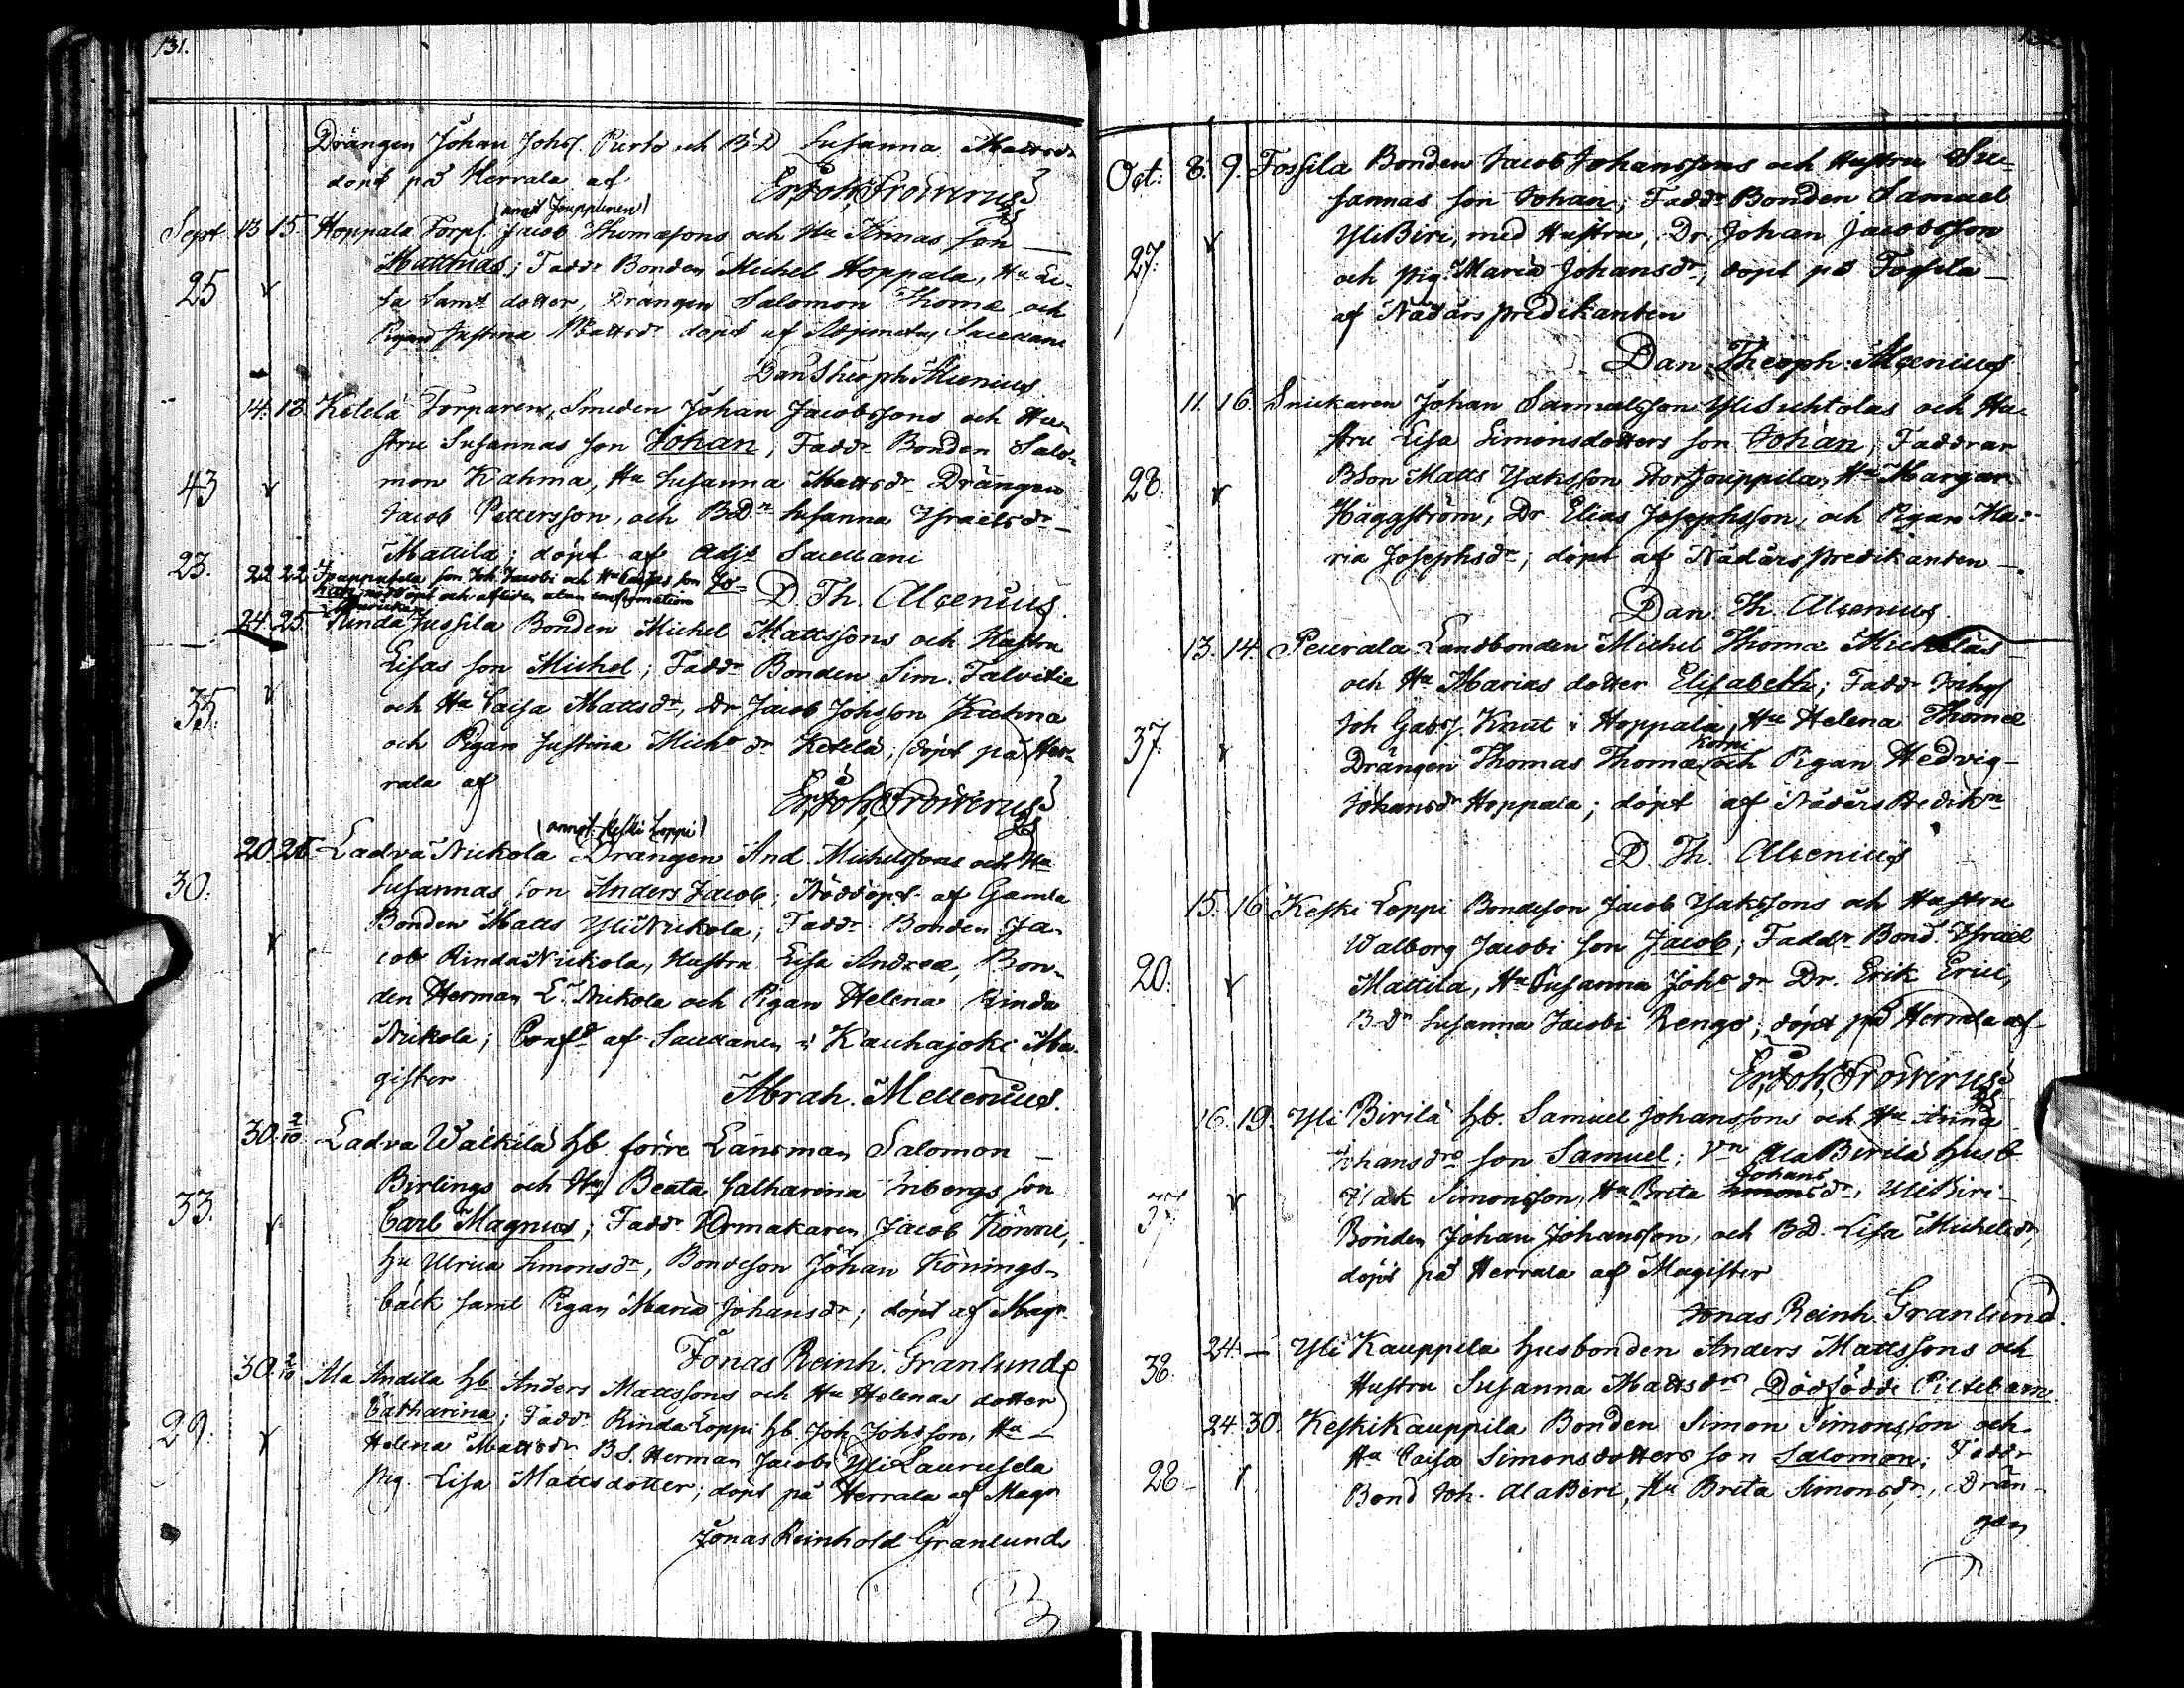 131.
Drängen Johan Johss. Purto och B:D Susanna Mattsdr
döpt på Herrala af Er. Joh. Frosterus
(annot Jouppinen)
Sept 13 15 Hoppala Torp. Jacob Thomæsons och Hu Annas son
Matthias; Faddr Bonden Michel Hoppala, Hu Li-
25 sa Saml dotter, Drängen Salomon Thomæ och
Pigan Justina Mattsdr döpt af Adjuncten Sacellani
Dan Theoph Alcenius
14. 18. Ketelä Torparen, Smeden Johan Jacobssons och Hu-
stru Susannas son Johan, Faddr Bonden Salo-
43 mon Kahma, Hu Susanna Mattsdr Drängen
Jacob Pettersson, och B:Dr Susanna Israelsdr
Mattila; döpt af Adjt Sacellani
23. 22 22 son Joh Jacobi och Hu Caisas son Jo-
han nöddöpt och afliden utan confirmation D. Th. Alcenius
24. 25. Rinda Jussila Bonden Michel Mattssons och Hustru
Lisas son Michel; Faddr Bonden Sim. Talvitie
35. och Hu Caisa Mattsdr, Dr Jacob Johsson Kahma
och Pigan Justina Michsdr Ketelä; döpt på Her-
rala af Er. Joh. Frosterus
(annot. Keski Loppi)
20. 25. Ladva Nickola Drängen And. Michelssons och Hu
30. Susannas son Anders Jacob; Nöddöpt af Gamla
Bonden Matts YliNickola; Faddr Bonden Ja-
cob RindaNickola, Hustru Lisa Andreæ, Bon-
den Herman L. Nickola och Pigan Helena Rinda
Nickola; Confd af Sacellanen i Kauhajoki Ma-
gister Abrah. Mellenius.
30. 2/10 Ladva Wälkilä Hb. förre Länsman Salomon
Birlings och Hu Beata Catharina Inbergs son
33. Carl Magnus; Faddr Urmakaren Jacob Könni,
Hu Ulrica Simonsdr, Bondeson Johan Könings-
bäck samt Pigan Maria Johansdr; döpt af Magr
Jonas Reinh. Granlund
30. 2/10 Ala Andila Hb Anders Mattssons och Hu Helenas dotter
Catharina; Faddr Rinda Loppi Hb. Joh Johsson, Hu
29. Helena Mattsdr B.S. Herman Jacobi YliLaurusela
Pig. Lisa Mattsdotter; döpt på Herrala af Magr
Jonas Reinhold Granlund
Oct: 8. 9. Fossila Bonden Jacob Johanssons och Hustru Su-
sannas son Johan; Faddr Bonden Samuel
27. YliBiri, med Hustru, Dr. Johan Jacobsson
och Pig. Maria Johansdr; döpt på Fossila
af Nådårs predikanten
Dan. Theoph. Alcenius
11. 16. Snickaren Johan Samuelsson YliSuhtolas och Hu-
stru Lisa Simonsdotters son Johan; Faddrar
28. BSon Matts Isaksson StorJouppila, Hu Margar.
Häggström, Dr. Elias Josephsson, och Pigan Ma-
ria Josephsdr; döpt af Nådårs predikanten
Dan. Th. Alcenius
13. 14. Peurala Landbonden Michel Thomæ
och Hu Marias dotter Elisabeth; Faddr Inhys
37. Joh Gabrs. Knut i Hoppala, Hu Helena Thomæ
Drängen Thomas Thomæ och Pigan Hedvig
Johansdr Hoppala; döpt af Nådårs Predikn
D. Th. Alcenius
15. 16 Keski Loppi Bondeson Jacob Isakssons och Hustru
Walborg Jacobi son Jacob; Faddr Bond. Israel
20. Mattila, Hu Susanna Johsdr Dr. Erik Erici,
B-Dr Susanna Jacobi Rengo; döpt på Herrala af
Er. Joh. Frosterus
16. 19. Yli Birilä Hb. Samuel Johanssons och Hu Anna
Johansdrs son Samuel; Vn AlaBirilä Husb
37. Isak Simonsson, Hu Brita Johans dr, YliBiri
Bonden Johan Johansson, och BD. Lisa Michelsdr,
döpt på Herrala af Magister
Jonas Reinh. Granlund.
24. — Yli Kauppila Husbonden Anders Mattssons och
38. Hustru Susanna Mattsdrs Dödfödde Piltebarn
24. 30. KeskiKauppila Bonden Simon Simonsson och
Hu Caisa Simonsdotters son Salomon; Faddr
28. Bond Joh. AlaBiri, Hu Brita Simonsdr, Drän-
gen